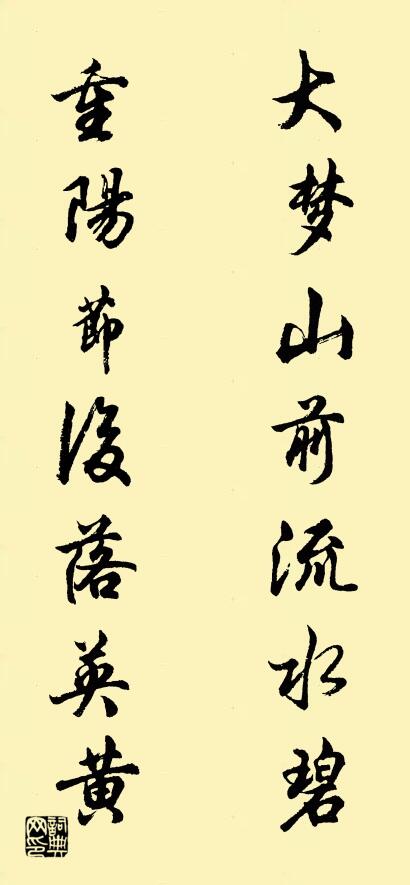 大梦山前流水碧
重陽節後落英黄
詞典网印